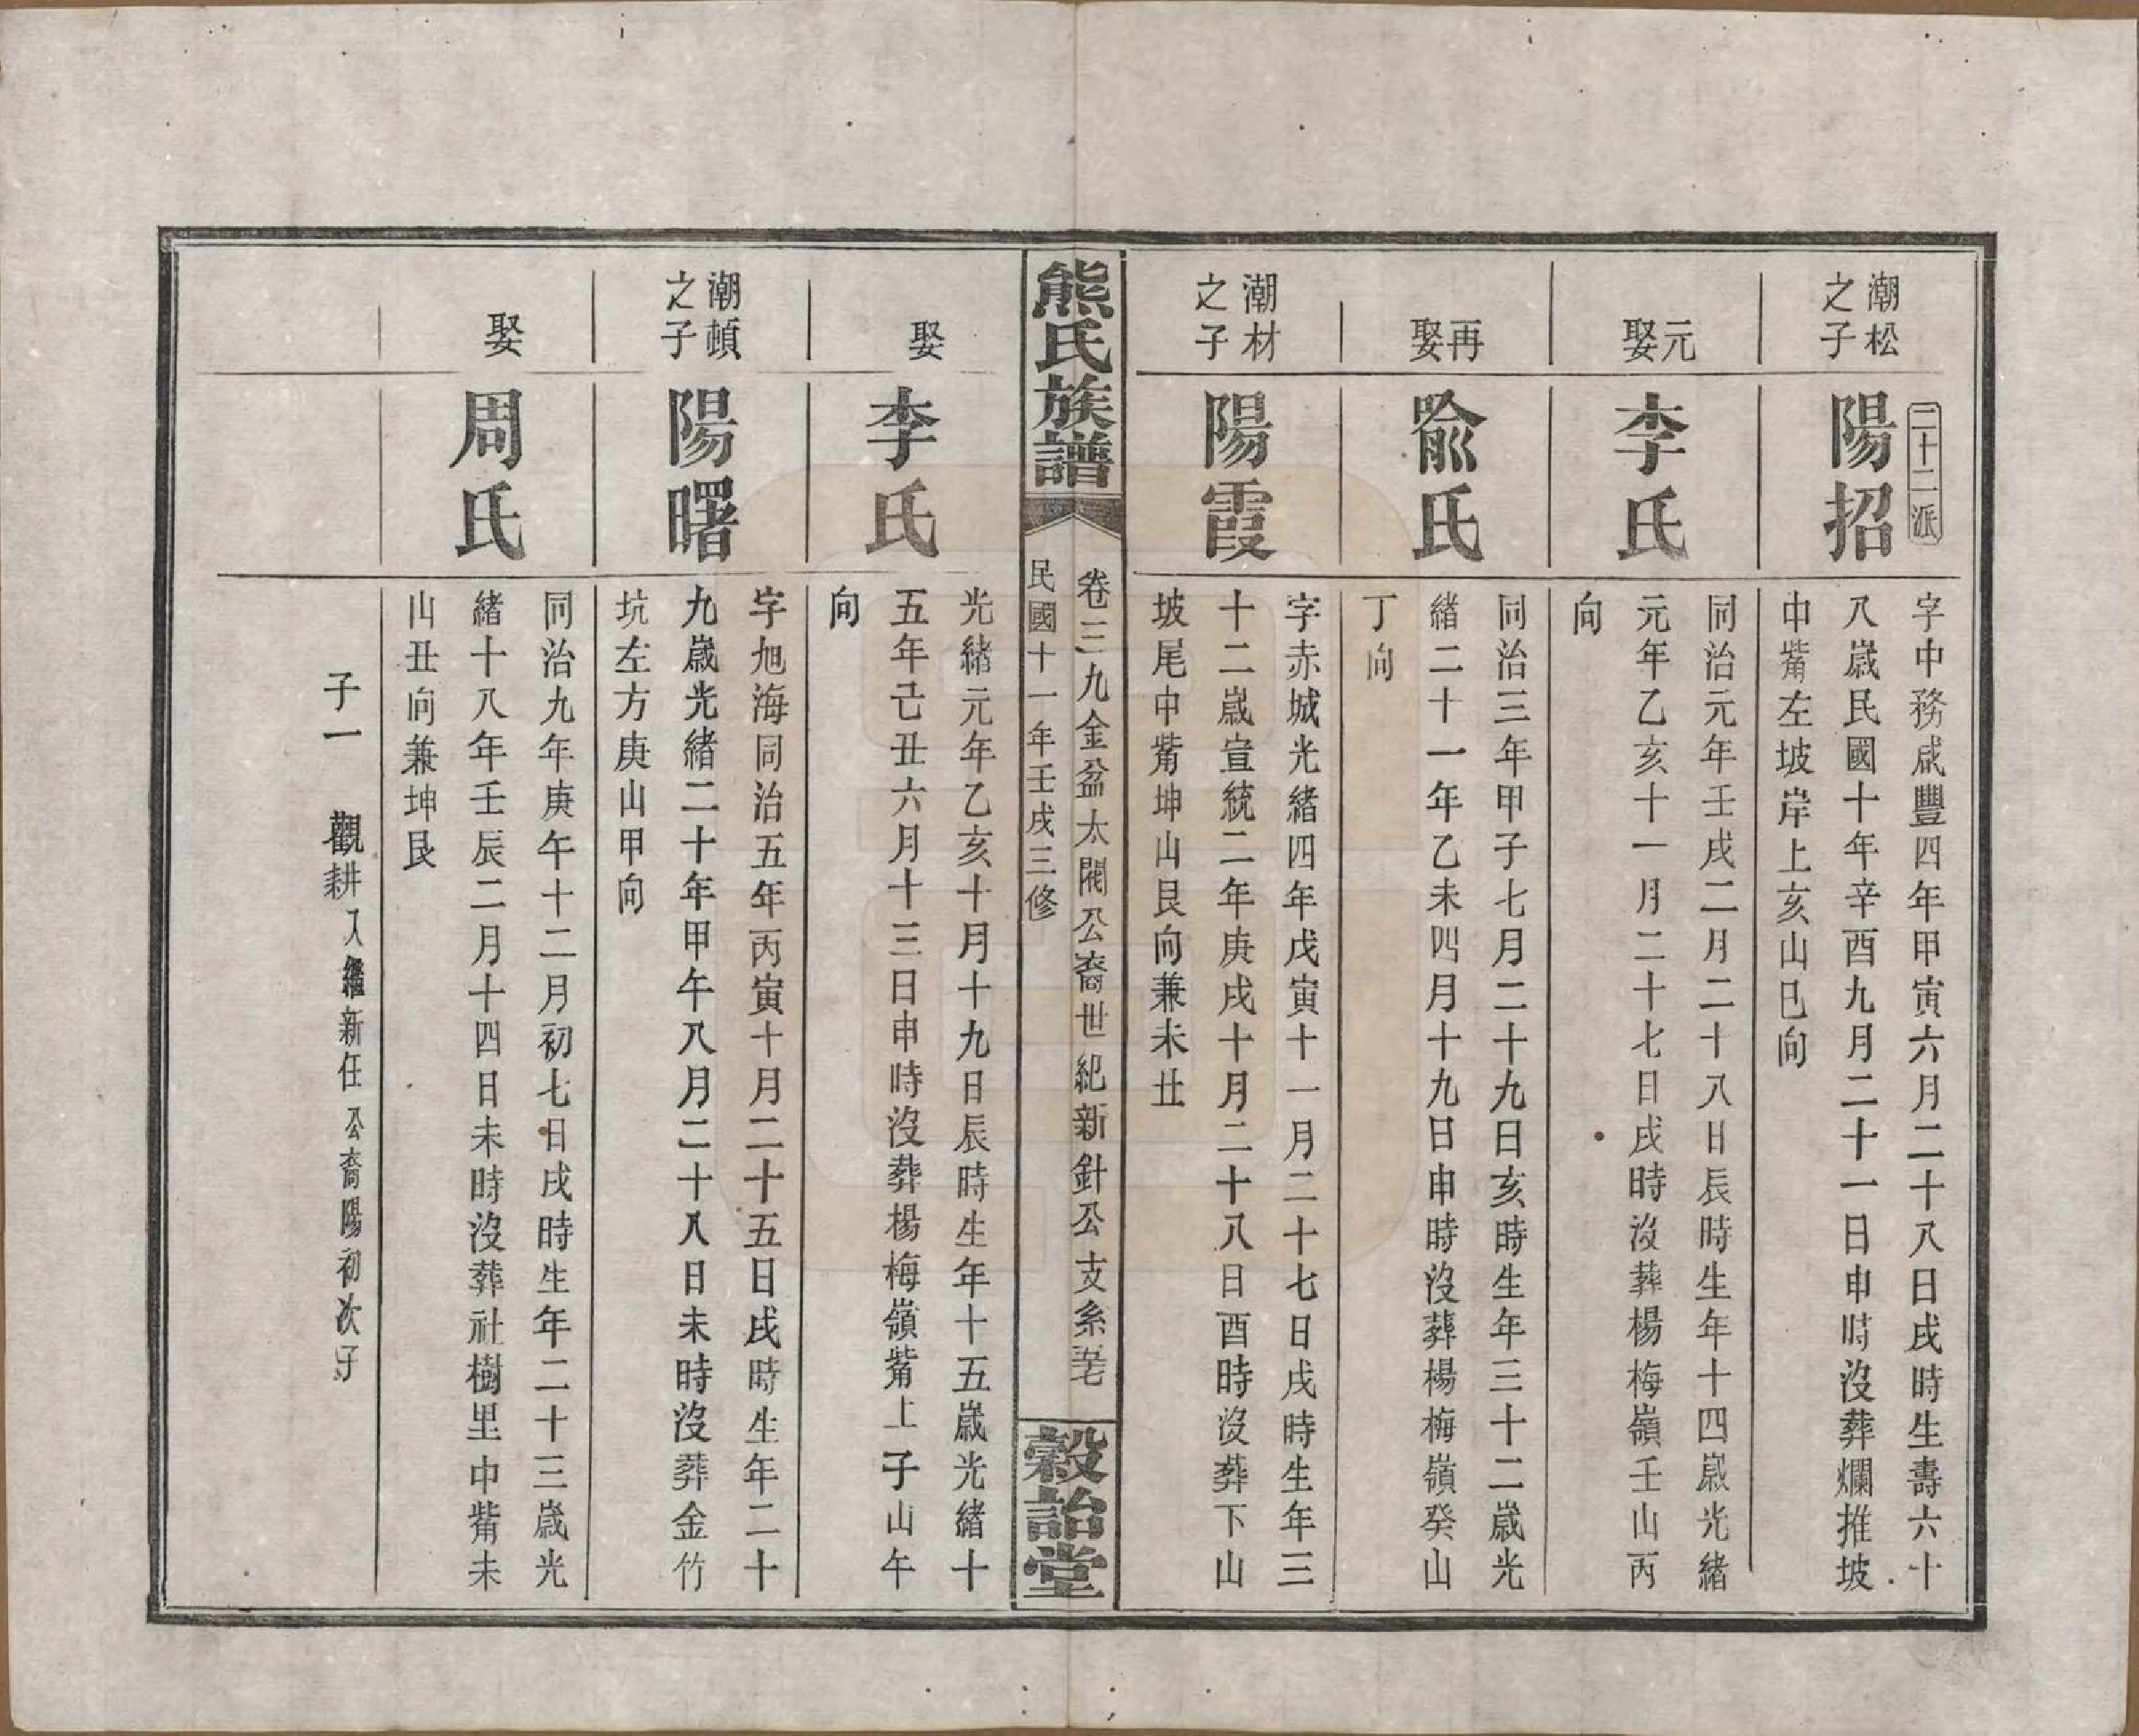 二十二派
潮松
之子
陽招
字中務咸豐四年甲寅六月二十八日戌時生壽六十
八歲民國十年辛酉九月二十一日申時沒葬爛推坡
中觜左坡岸上亥山巳向
元娶
李氏
同治元年壬戌二月二十八日辰時生年十四歲光緒
元年乙亥十一月二十七日戌時沒葬楊梅嶺壬山丙
向
再娶
俞氏
同治三年甲子七月二十九日亥時生年三十二歲光
緒二十一年乙未四月十九日申時沒葬楊梅嶺癸山
丁向
潮材
之子
陽霞
字赤城光緒四年戊寅十一月二十七日戌時生年三
十二歲宣統二年庚戌十月二十八日酉時沒葬下山
坡尾中觜坤山艮向兼未丑
熊氏族譜
卷三 九金盆太閣公裔世紀新針公支系
民國十一年壬戌三修
穀詒堂
娶
李氏
光緒元年乙亥十月十九日辰時生年十五歲光緒十
五年己丑六月十三日申時沒葬楊梅嶺觜上子山午
向
潮頔
之子
陽曙
字旭海同治五年丙寅十月二十五日戌時生年二十
九歲光緒二十年甲午八月二十八日未時沒葬金竹
坑左方庚山甲向
娶
周氏
同治九年庚午十二月初七日戌時生年二十三歲光
緒十八年壬辰二月十四日未時沒葬社樹里中觜未
山丑向兼坤艮
子一 觀耕 入繼新任公裔陽初次子